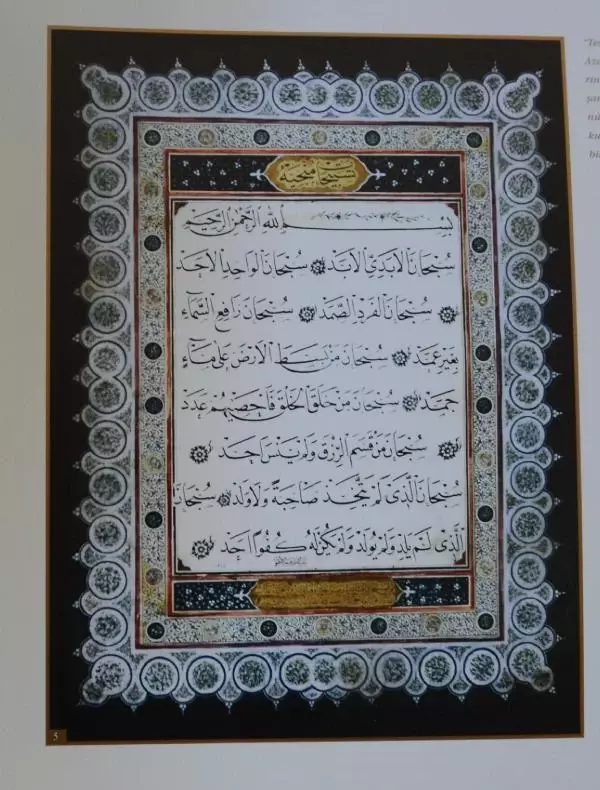 تسبيحات منجية
بسم الله الرحمن الرحيم
سُبْحَانَ الْاَبَدِيِّ الْاَبَدْ سُبْحَانَ الْوَاحِدِ الْاَحَدْ
سُبْحَانَ الْفَرْدِ الصَّمَدْ سُبْحَانَ رَافِعِ السَّمَاءِ
بِغَيْرِ عَمَدْ سُبْحَانَ مَنْ بَسَطَ الْاَرْضَ عَلٰى مَاءٍ
جَمَدْ سُبْحَانَ مَنْ خَلَقَ الْخَلْقَ فَاَحْصٰيهُمْ عَدَدْ
سُبْحَانَ مَنْ قَسَمَ الرِّزْقَ وَلَمْ يَنْسَ اَحَدْ
سُبْحَانَ الَّذٖى لَمْ يَتَّخِذْ صَاحِبَةً وَلَا وَلَدْ سُبْحَانَ
الَّذٖى لَمْ يَلِدْ وَلَمْ يُولَدْ وَلَمْ يَكُنْ لَهُ كُفُوًا اَحَدْ
5